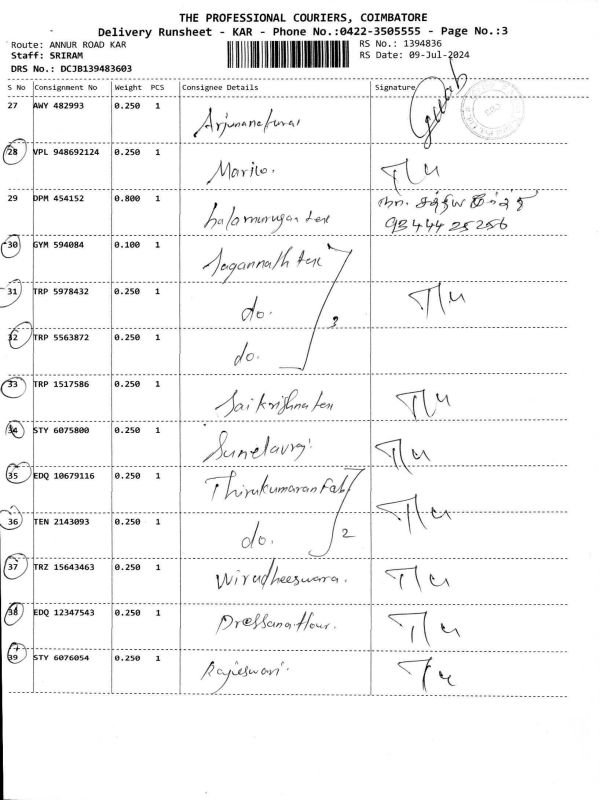 THE PROFESSIONAL COURIERS, COIMBATORE
Delivery Runsheet - KAR - Phone No.:0422-3505555 - Page No.:3
Route: ANNUR ROAD KAR RS No.: 1394836
Staff: SRIRAM RS Date: 09-Jul-2024
DRS No.: DCJB139483603
S No Consignment No Weight PCS Consignee Details Signature
27 AWY 482993 0.250 1
28 VPL 948692124 0.250 1 Marico. T/u
29 DPM 454152 0.800 1 balamurugan tex
9344425256
30 GYM 594084 0.100 1 Jagannath tex
31 TRP 5978432 0.250 1 do. T/u
32 TRP 5563872 0.250 1 do. 3
33 TRP 1517586 0.250 1 Saikrishna tex T/u
34 STY 6075800 0.250 1 T/u
35 EDQ 10679116 0.250 1 Thirukumaran Fab T/u
36 TEN 2143093 0.250 1 do. 2
37 TRZ 15643463 0.250 1 T/u
38 EDQ 12347543 0.250 1 T/u
39 STY 6076054 0.250 1 Rajeswari. T/u